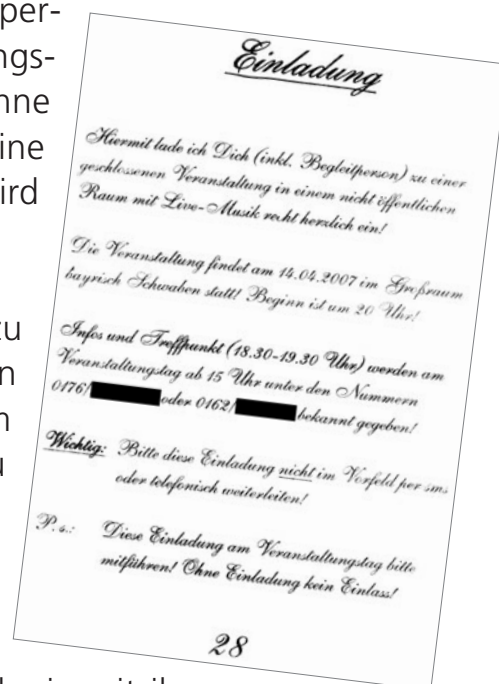 per-
ngs-
nne
ine
ird
zu
n
n
u
Einladung
Hiermit lade ich Dich (inkl. Begleitperson) zu einer
geschlossenen Veranstaltung in einem nicht öffentlichen
Raum mit Live-Musik recht herzlich ein!
Die Veranstaltung findet am 14.04.2007 im Großraum
bayrisch Schwaben statt! Beginn ist um 20 Uhr!
Infos und Treffpunkt (18.30-19.30 Uhr) werden am
Veranstaltungstag ab 15 Uhr unter den Nummern
0176/ oder 0162/ bekannt gegeben!
Wichtig: Bitte diese Einladung nicht im Vorfeld per sms
oder telefonisch weiterleiten!
P.s.: Diese Einladung am Veranstaltungstag bitte
mitführen! Ohne Einladung kein Einlass!
28